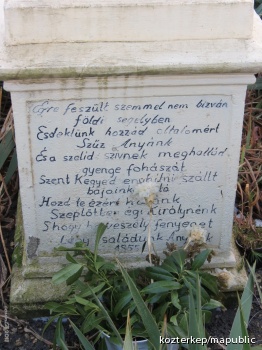 Égre feszült szemmel nem bizván
földi segélyben
Esdeklünk hozzád oltalomért
Szűz Anyánk
És a szelid szivnek meghallád
gyenge fohászát
Szent Kegyed szállt
bájaink
Hozd le ezért
Szeplőtlen égi Királynénk
S hogy fényenet
családunk
kozterkep/mapublic